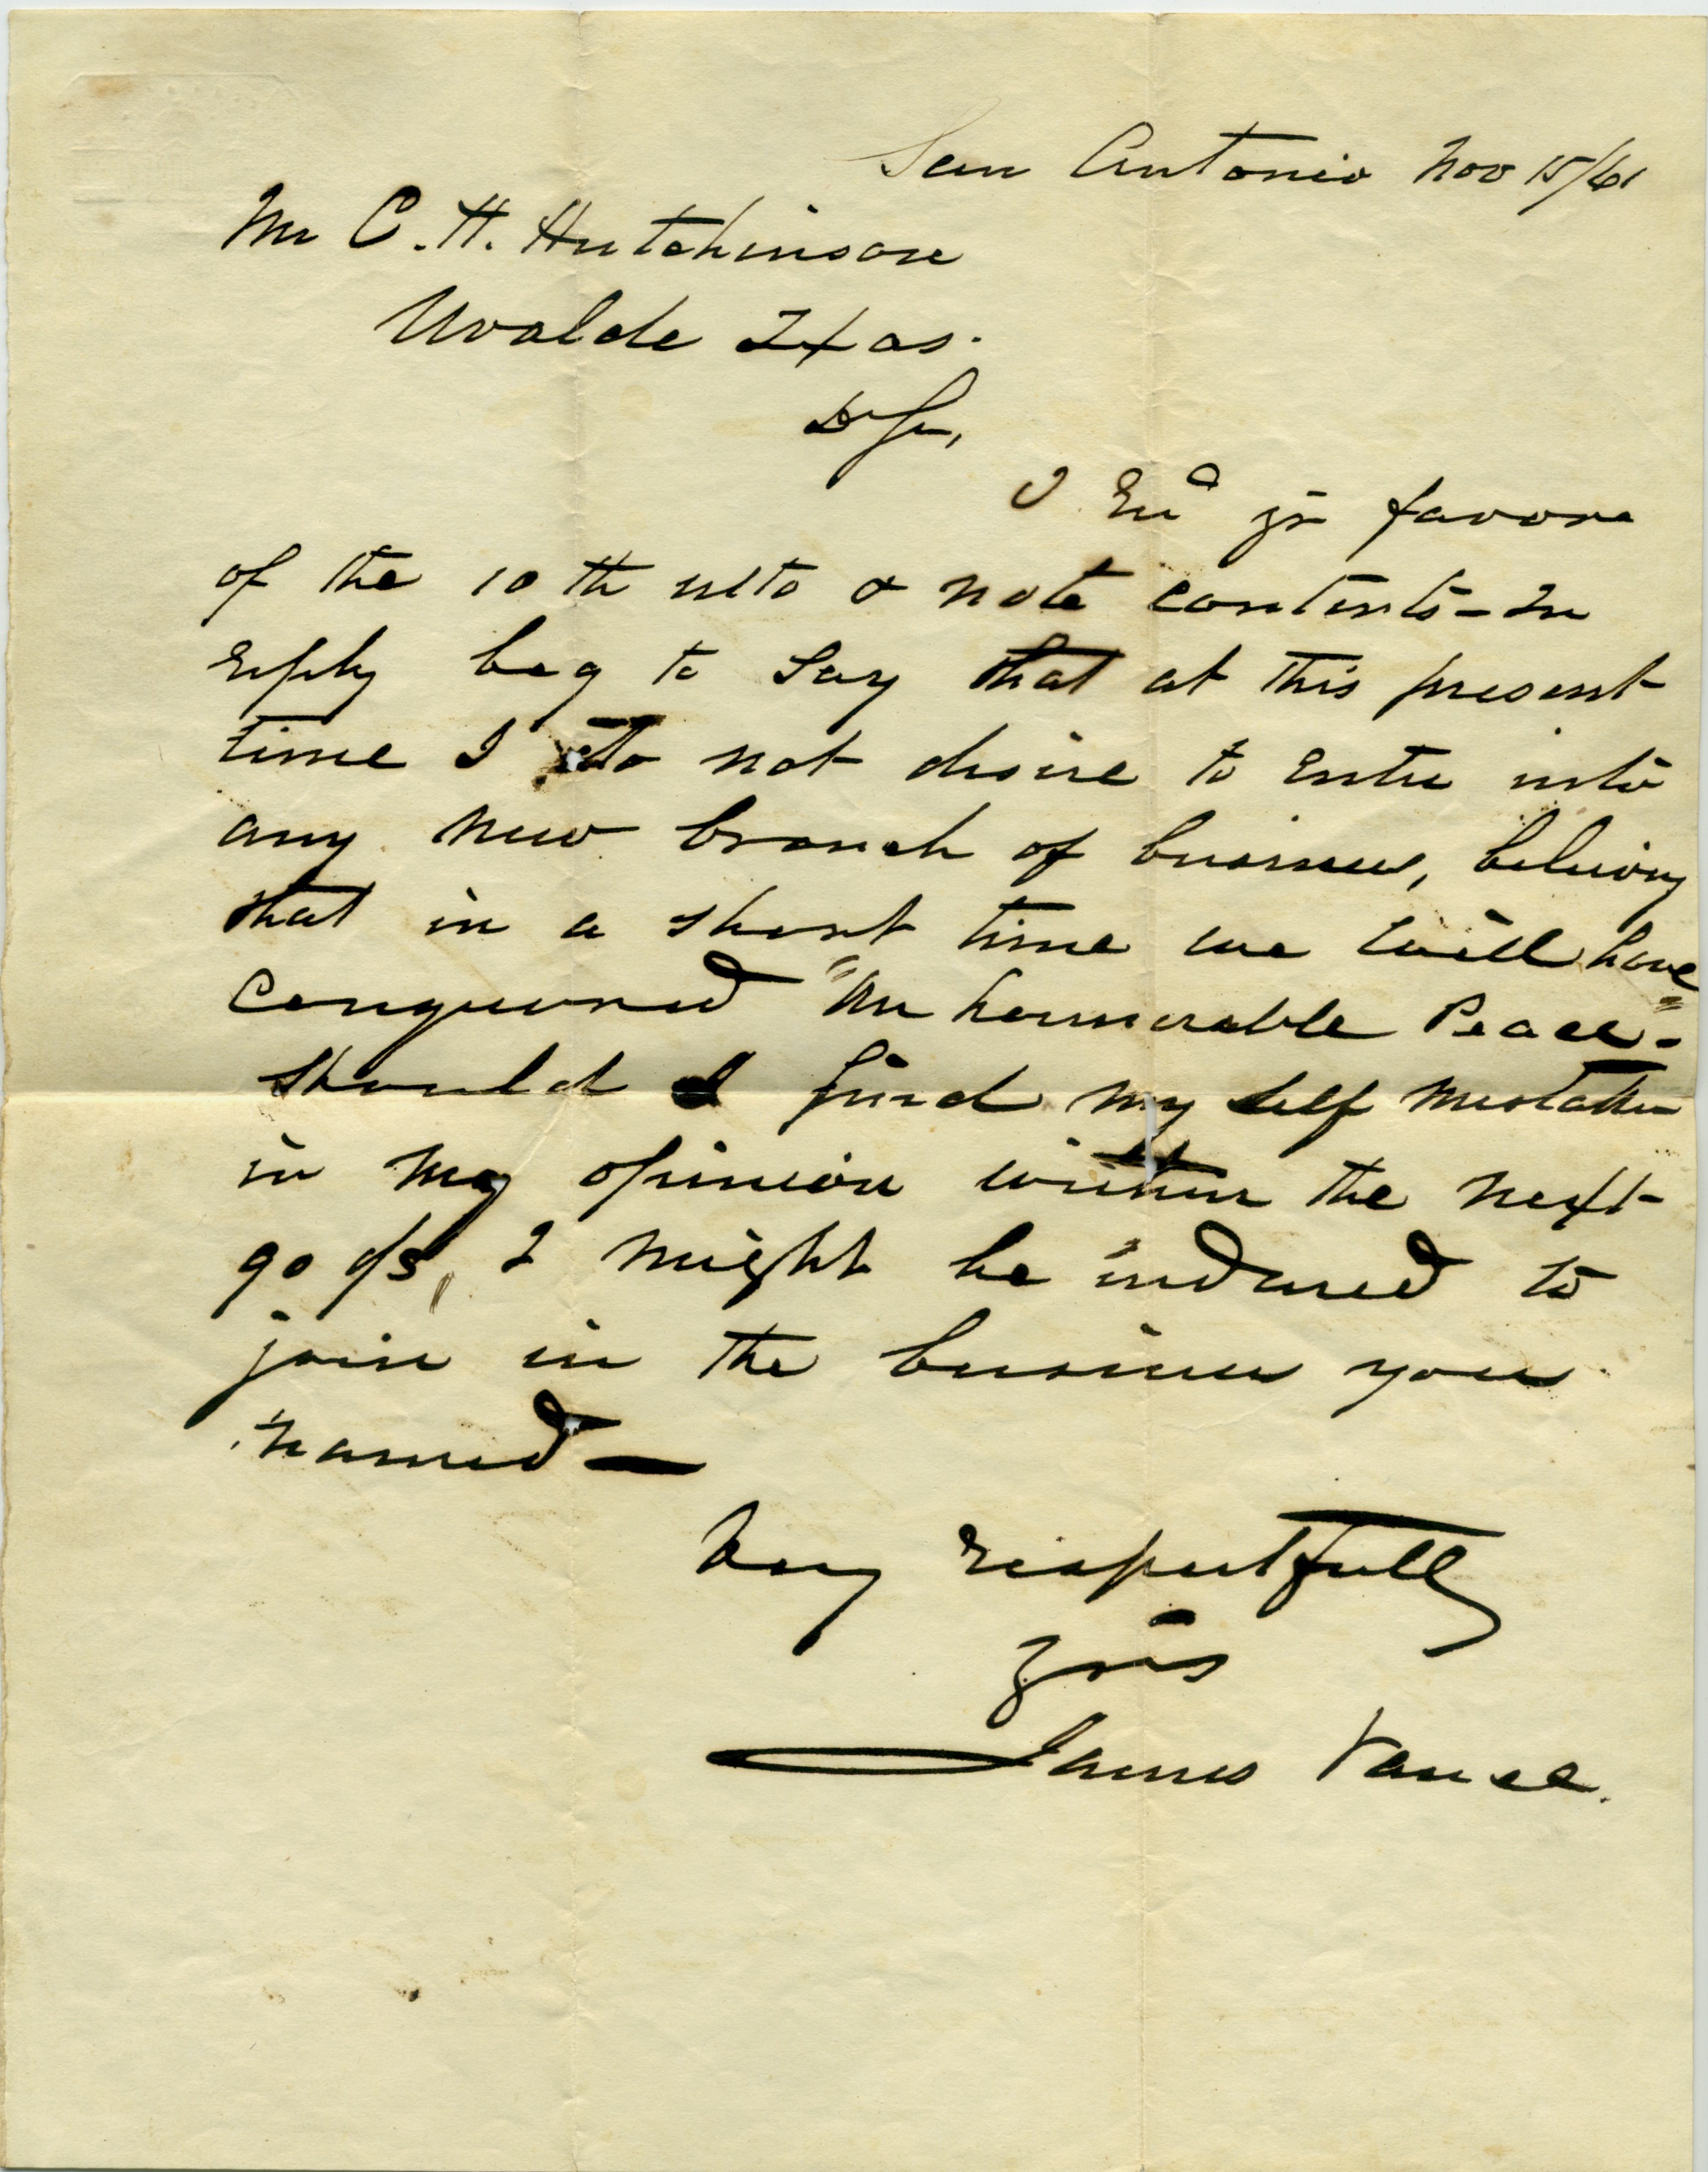 San Antonio Nov 15/61
Mr C. H. Hutchinson
Uvalde Texas.
Dr Sr,
I Recd yr favore
of the 10th ulto & note contents - In
reply beg to say that at this present
time I do not desire to enter into
any new branch of business, believing
that in a short time we will have
conquered "An hounorable Peace" -
Should I find my self mistaken
in my opinion within the next
90 d/s, I might be induced to
join in the business you
named —
Very respectfully
Yours
James Vance.